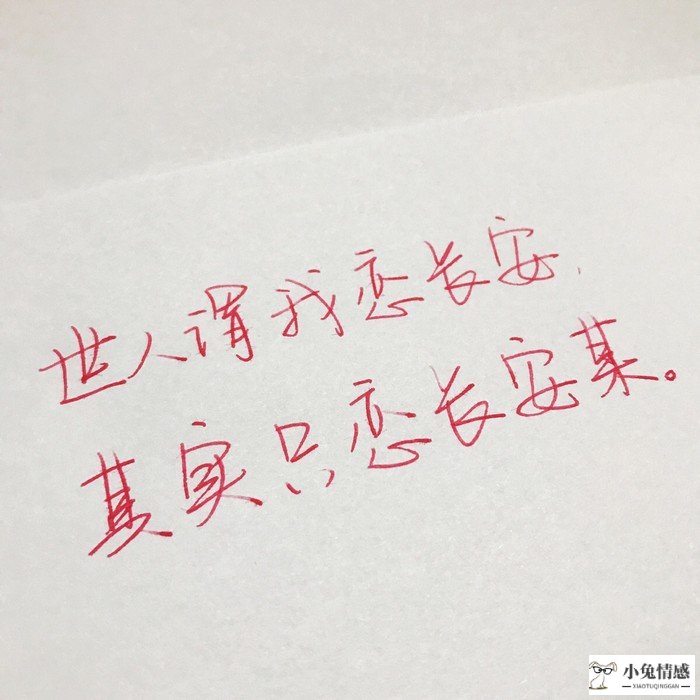 世人谓我恋长安，
其实只恋长安某。
小兔情感
XIAOTUQINGGAN